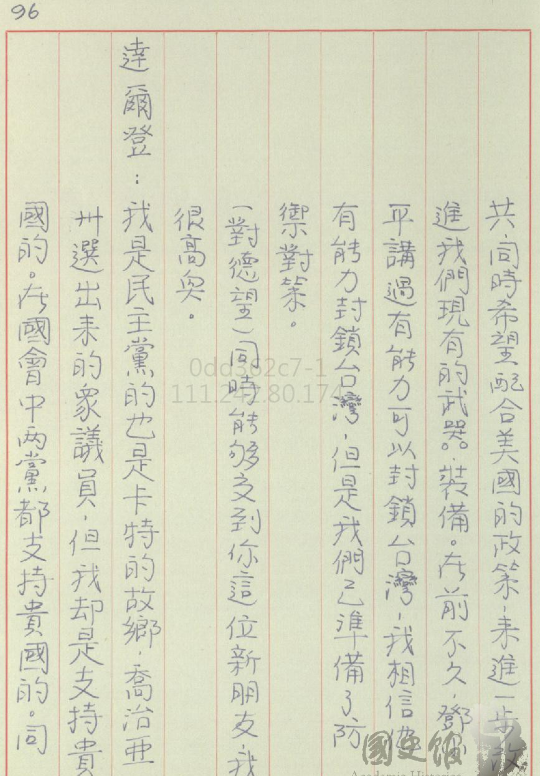 96
共,同時希望配合美國的政策,來進一步改
進我們現有的武器。裝備。在前不久,鄧小
平講過有能力可以封鎖台灣,我相信他
有能力封鎖台灣,但是我們已準備了防
禦對策。
(對德望)同時能够交到你這位新朋友,我
很高興。
達爾登:我是民主黨的也是卡特的故鄉,喬治亞
州選出來的衆議員,但我却是支持貴
國的。在國會中两黨都支持貴國的。同
0dd382c7-1
國史館